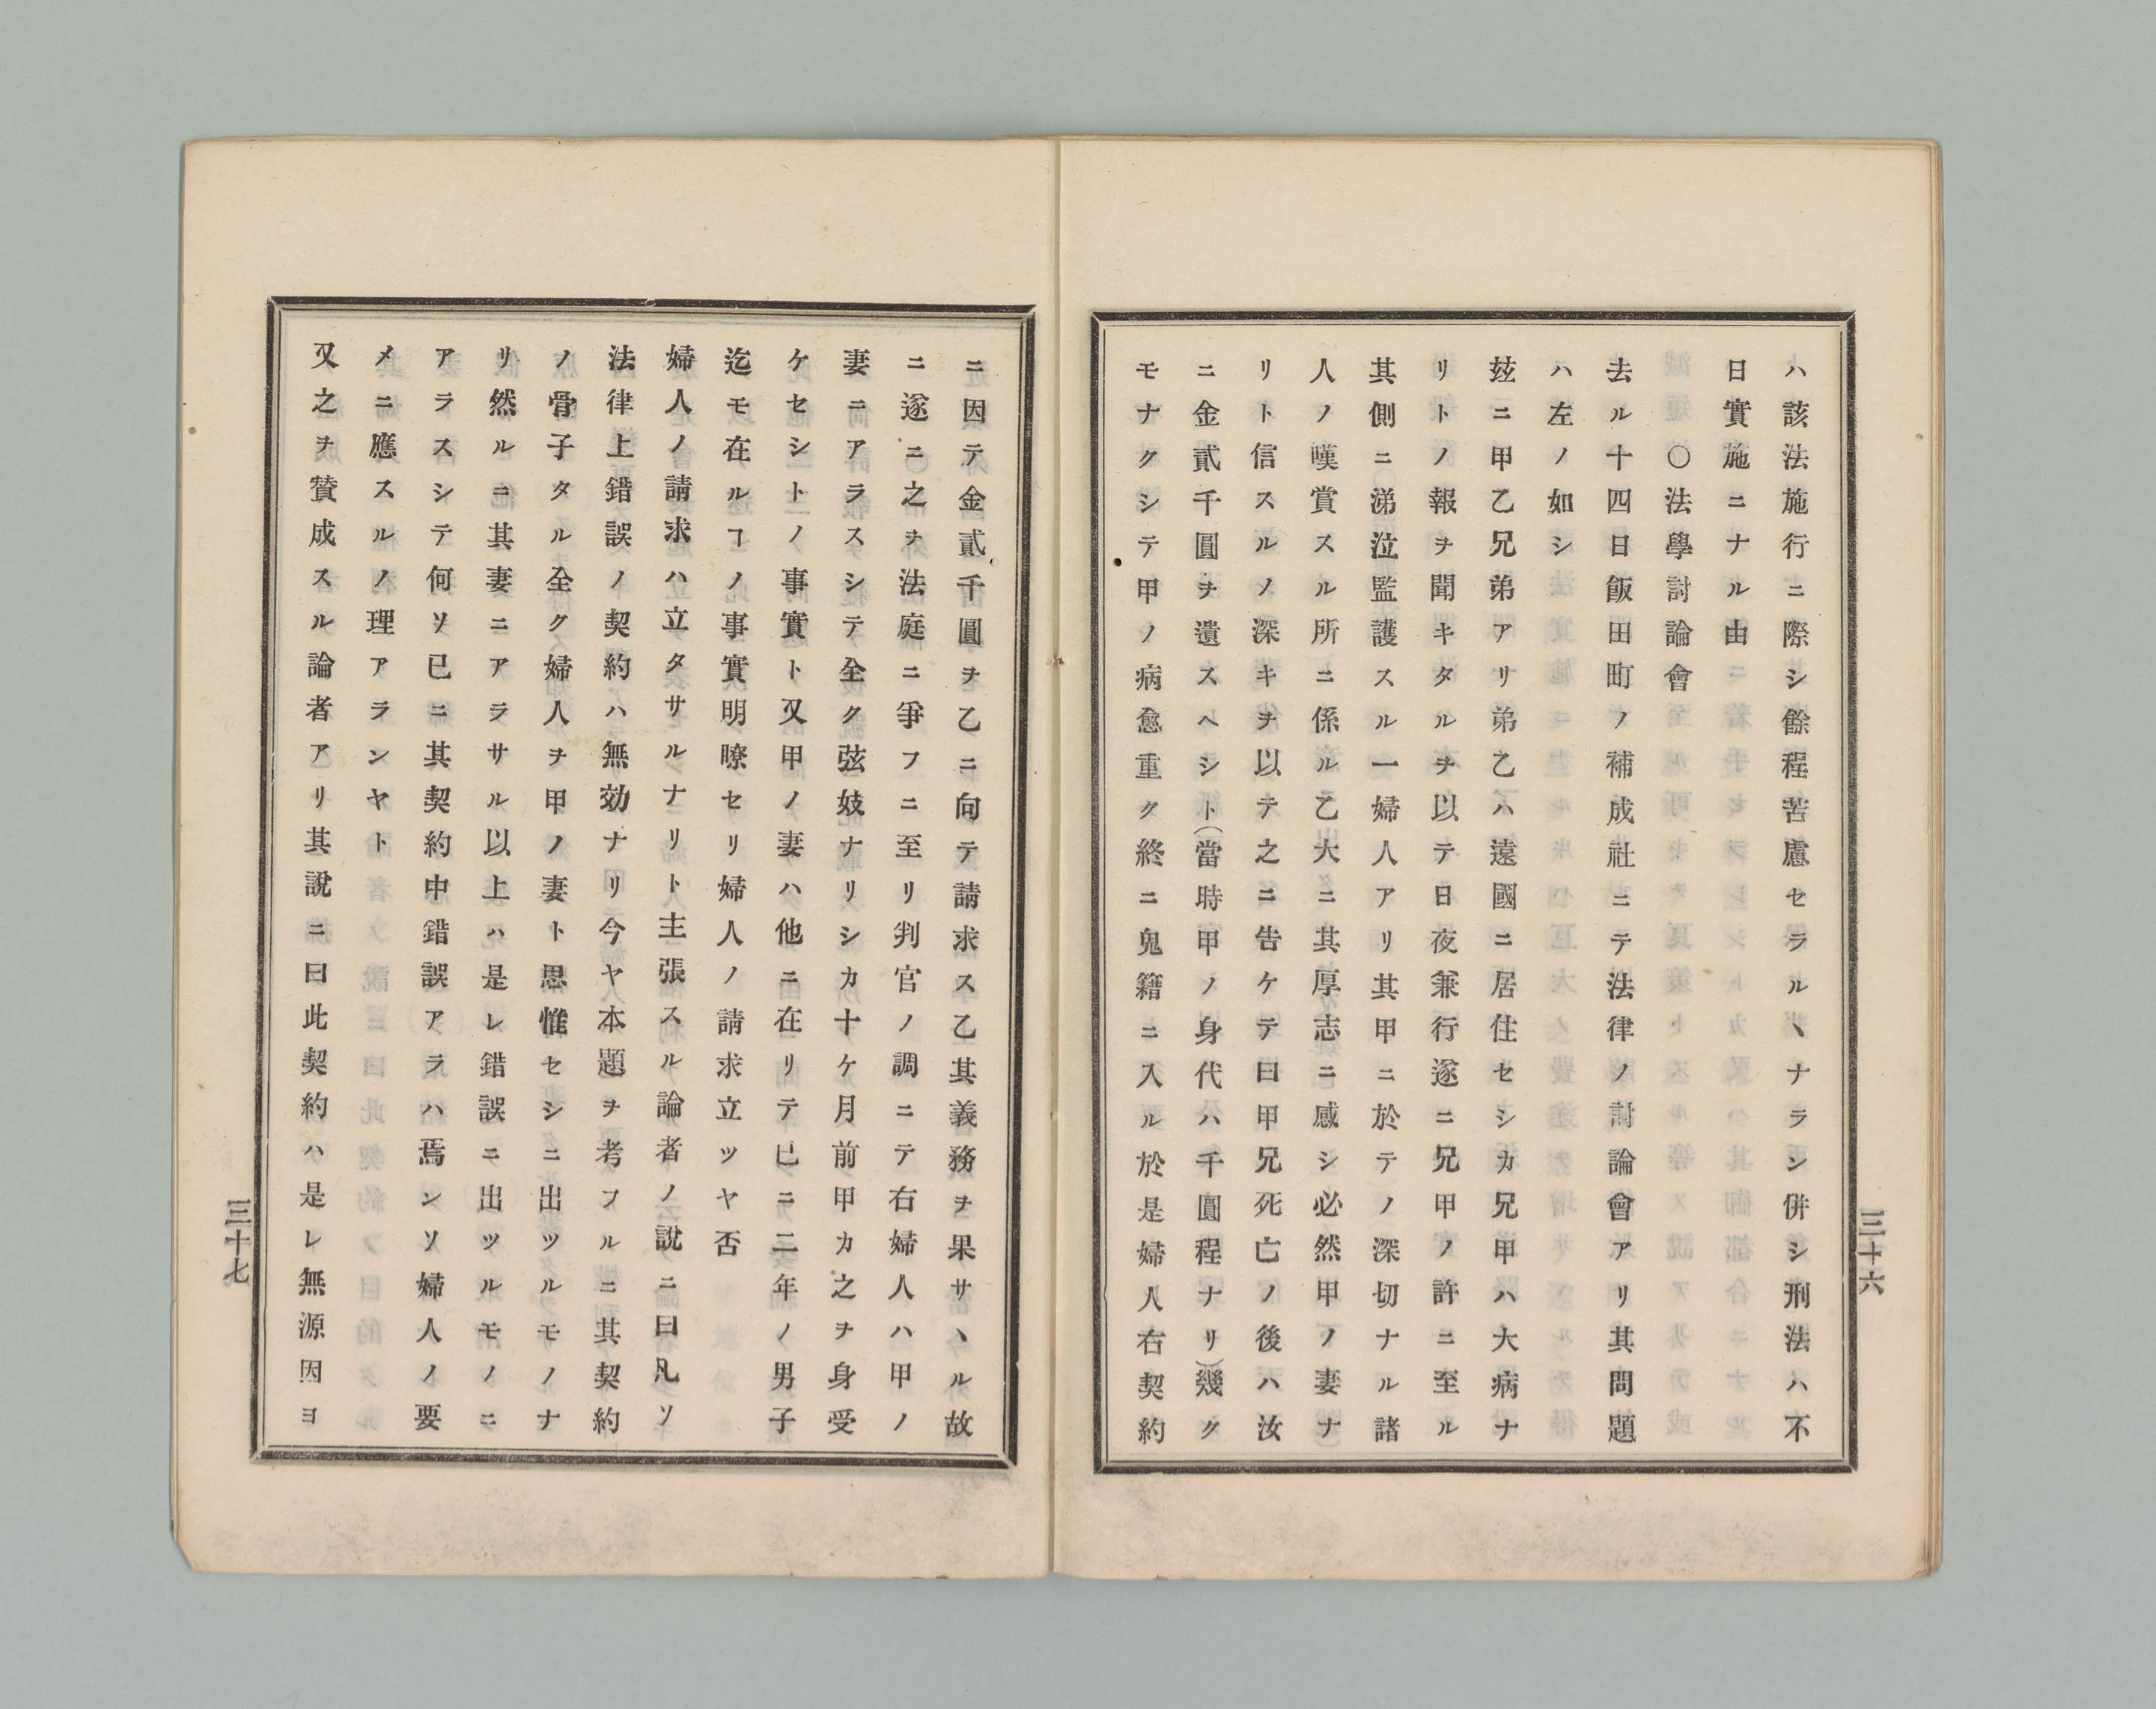 ハ該法施行ニ際シ餘程苦慮セラルヽナラン併シ刑法ハ不
日實施ニナル由
〇法學討論會
去ル十四日飯田町ノ補成社ニテ法律ノ討論會アリ其問題
ハ左ノ如シ
玆ニ甲乙兄弟アリ弟乙ハ遠國ニ居住セシカ兄甲ハ大病ナ
リトノ報ヲ聞キタルヲ以テ日夜兼行遂ニ兄甲ノ許ニ至ル
其側ニ涕泣監護スル一婦人アリ其甲ニ於テノ深切ナル諸
人ノ嘆賞スル所ニ係ル乙大ニ其厚志ニ感シ必然甲ノ妻ナ
リト信スルノ深キヲ以テ之ニ告ケテ曰甲兄死亡ノ後ハ汝
ニ金貳千圓ヲ遺スヘシト(當時甲ノ身代ハ千圓程ナリ)幾ク
モナクシテ甲ノ病愈重ク終ニ鬼籍ニ入ル於是婦人右契約
三十六
ニ因テ金貳千圓ヲ乙ニ向テ請求ス乙其義務ヲ果サヽル故
ニ遂ニ之ヲ法庭ニ爭フニ至リ判官ノ調ニテ右婦人ハ甲ノ
妻ニアラスシテ全ク弦妓ナリシカ十ケ月前甲カ之ヲ身受
ケセシトノ事實ト又甲ノ妻ハ他ニ在リテ已ニ二年ノ男子
迄モ在ルヿノ事實明瞭セリ婦人ノ請求立ツヤ否
婦人ノ請求ハ立タサルナリト主張スル論者ノ說ニ曰凡ソ
法律上錯誤ノ契約ハ無効ナリ今ヤ本題ヲ考フルニ其契約
ノ骨子タル全ク婦人ヲ甲ノ妻ト思惟セシニ出ツルモノナ
リ然ルニ其妻ニアラサル以上ハ是レ錯誤ニ出ツルモノニ
アラスシテ何ソ已ニ其契約中錯誤アラハ焉ンソ婦人ノ要
メニ應スルノ理アランヤト
又之ヲ賛成スル論者アリ其說ニ曰此契約ハ是レ無源因ヨ
三十七